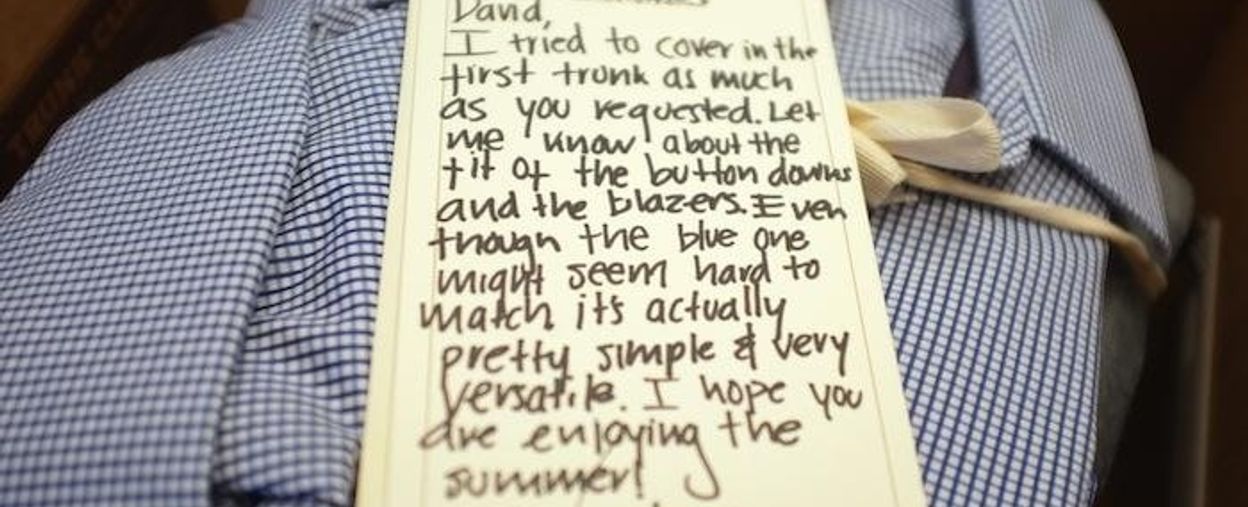 David,
I tried to cover in the
first trunk as much
as you requested. Let
me know about the
fit of the button downs
and the blazers. Even
though the blue one
might seem hard to
match its actually
pretty simple & very
versatile. I hope you
are enjoying the
summer!
TRUNK CLUB